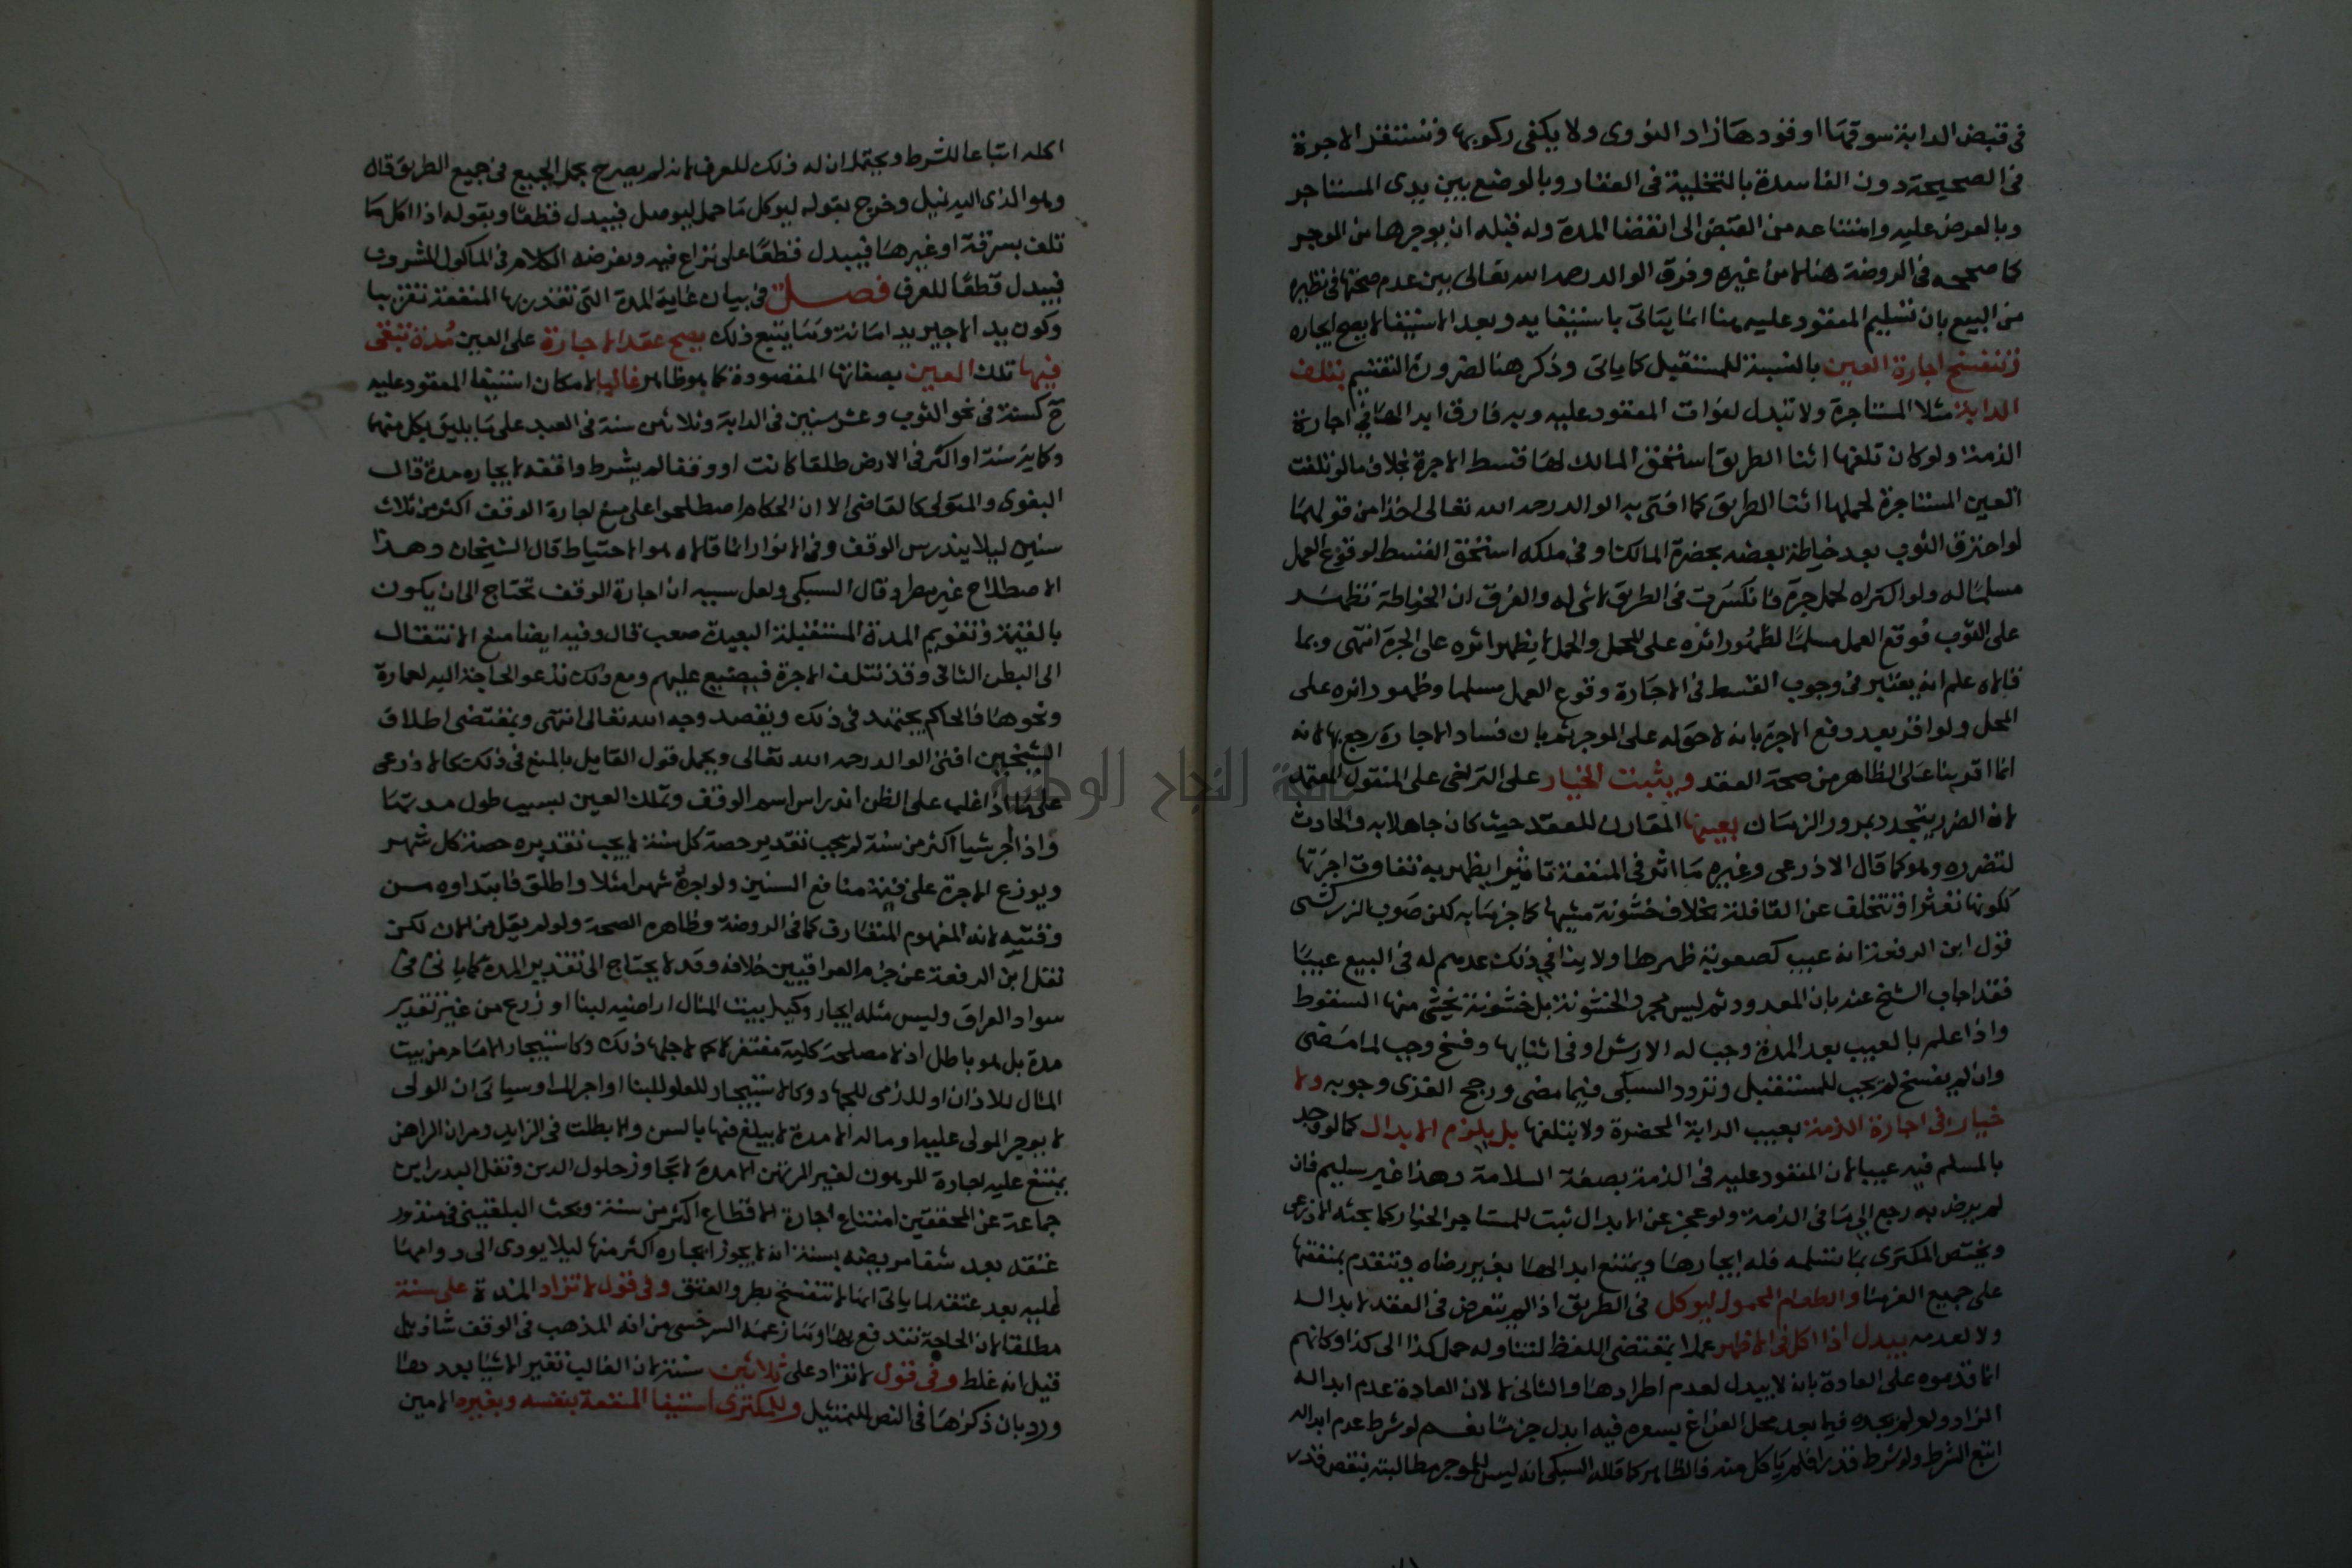 في قبض الدابة سوقها او قودها زاد النووى ولا يكفى ركوبها وتستقر الاجرة
فى الصحيحة دون الفاسدة بالتخلية فى العقار وبالوضع بين يدى المستاجر
وبالعرض عليه وامتناعه من القبض الى انقضا المدة وله قبله ان يوجرها من الموجر
كما صححه فى الروضة هنا لا من غيره وفرق الوالد رحمه الله تعالى بين عدم صحتها فى نظيره
من البيع بان تسليم المعقود عليه هنا انما يتاتى باستيفايه وبعد الاستيفا لا يصح ايجاره
وتنفسخ اجارة العين بالنسبة للمستقبل كما ياتى وذكر هنا لضرورة التقسيم بتلف
الدابة مثلا المستاجرة ولا تبدل لفوات المعقود عليه وبه فارق ابدالها في اجارة
الذمة ولو كان تلفها اثنا الطريق استحق المالك لها قسط الاجرة بخلاف ما لو تلفت
العين المستاجرة لحملها اثنا الطريق كما افتى به الوالد رحمه الله تعالى اخذا من قولهما
لو احترق الثوب بعد خياطة بعضه بحضرة المالك او فى ملكه استحق القسط لوقوع العمل
مسلما له ولو اكتراه لحمل جرة فانكسرت فى الطريق لا شى له والفرق ان الخياطة تظهر
على الثوب فوقع العمل مسلما لظهور اثره على المحل والحمل لا يظهر اثره على الجرة انتهى وبما
قالاه علم انه يعتبر فى وجوب القسط فى الاجارة وقوع العمل مسلما وظهور اثره على
المحل ولو اقر بعد دفع الاجرة بانه لا حق له على الموجر ثم بان فساد الاجارة رجع بها لانه
انما اقر بنا على الظاهر من صحة العقد ويثبت الخيار على التراخى على المنقول المعتمد
لان الضرر يتجدد بمرور الزمان بعيبها المقارن للعقد حيث كان جاهلا به والحادث
لتضرره وهو كما قال الاذرعى وغيره ما اثر فى المنفعة تاثيرا يظهر به تفاوت اجرتها
ككونها تعثر او تتخلف عن القافلة بخلاف خشونة مشيها كما جزما به لكن صوب الزركشى
قول ابن الرفعة انه عيب كصعوبة ظهرها ولا ينافي ذلك عدهم له فى البيع عيبا
فقد اجاب الشيخ عنه بان المعدود ثم ليس مجرد الخشونة بل خشونة يخشى منها السقوط
واذا علم بالعيب بعد المدة وجب له الارش او فى اثنايها وفسخ وجب لما مضى
وان لم يفسخ لم يجب للمستقبل وتردد السبكى فيما مضى ورجح الغزى وجوبه ولا
خيار فى اجارة الذمة بعيب الدابة المحضرة ولا بتلفها بل يلزم الابدال كما لو وجد
بالمسلم فيه عيبا لان المعقود عليه فى الذمة بصفة السلامة وهذا غير سليم فان
لم يرض به رجع الى ما فى الذمة ولو عجز عن الابدال ثبت للمستاجر الخيار كما بحثه الاذرعى
ويختص المكترى بما تسلمه فله ايجارها ويمتنع ابدالها بغير رضاه ويتقدم بمنفعتها
على جميع الغرما والطعام المحمول ليوكل فى الطريق اذا لم يتعرض فى العقد لابداله
ولا لعدمه يبدل اذا اكل فى الاظهر عملا بمقتضى اللفظ لتناوله حمل كذا الى كذا وكانهم
انما قدموه على العادة بانه لا يبدل لعدم اطرادها والثانى لا لان العادة عدم ابداله
الزاد ولو لم يجده فيما بعد محل الفراغ بسعره فيه ابدل جزما نعم لو شرط عدم ابداله
اتبع الشرط ولو شرط قدرا فلم ياكل منه فالظاهر كما قاله السبكى انه ليس للموجر مطالبته بنقص قدر
اكله اتباعا للشرط ويحتمل ان له ذلك للعرف لانه لم يصرح بحمل الجميع فى جميع الطريق قال
وهو الذى اليه نميل وخرج بقوله ليوكل ما حمل ليوصل فيبدل قطعا وبقوله اذا اكل ما
تلف بسرقة او غيرها فيبدل قطعا على نزاع فيه وبفرضه الكلام فى الماكول المشروب
فيبدل قطعا للعرف فصل فى بيان غاية المدة التى تقدر بها المنفعة تقريبا
وكون يد الاجير يد امانة وما يتبع ذلك يصح عقد الاجارة على العين مدة تبقى
فيها تلك العين بصفاتها المقصودة كما هو ظاهر غالبا لامكان استيفا المعقود عليه
ح كسنة فى نحو الثوب وعشر سنين فى الدابة وثلاثين سنة فى العبد على ما يليق بكل منهما
وكماية سنة او اكثر فى الارض طلقا كانت او وقفا لم يشرط واقفه لايجاره مدة قال
البغوى والمتولى كالقاضى الا ان الحكام اصطلحوا على منع اجارة الوقف اكثر من ثلاث
سنين ليلا يندرس الوقف وفى الانوار انما قالاه هو الاحتياط قال الشيخان وهذا
الاصطلاح غير مطرد وقال السبكى ولعل سببه ان اجارة الوقف تحتاج الى ان يكون
بالقيمة وتقويم المدة المستقبلة البعيدة صعب قال وفيه ايضا منع الانتقال
الى البطن الثانى وقد تتلف الاجرة فيضيع عليهم ومع ذلك تدعو الحاجة اليه لعمارة
ونحوها فالحاكم يجتهد فى ذلك ويقصد وجه الله تعالى انتهى وبمقتضى اطلاق
الشيخين افتى الوالد رحمه الله تعالى ويحمل قول القايل بالمنع فى ذلك كالاذرعى
على ما اذا غلب على الظن اندراس اسم الوقف وتملك العين بسبب طول مدتها
واذا اجر شيا اكثر من سنة لم يجب تقدير حصة كل سنة كما لا يجب تقديره حصة كل شهر
ويوزع الاجرة على قيمة منافع السنين ولو اجره شهرا مثلا واطلق فابتداوه من
وقتيه لانه المفهوم المتعارف كما فى الروضة وظاهره الصحة ولو لم يقل من الان لكن
نقل ابن الرفعة عن جزم العراقيين خلافه وقد لا يحتاج الى تقدير المدة كما ياتى فى
سواد العراق وليس مثله ايجار وكيل بيت المال اراضيه لبنا او زرع من غير تقدير
مدة بل هو باطل اذ لا مصلحة كلية مغتفر لاجلها ذلك وكاستيجار الامام من بيت
المال للاذان او للذمى للجهاد وكالاستيجار للعلو للبنا او اجرا الما وسياتى ان الولى
لا يوجر المولى عليه او ماله الا مدة لا يبلغ فيها بالسن والا بطلت فى الزايد ومر ان الراهن
يمتنع عليه اجارة المرهون لغير المرتهن الا مدة لا تجاوز حلول الدين ونقل البدر ابن
جماعة عن المحققين امتناع اجارة الاقطاع اكثر من سنة وبحث البلقينى فى منذور
عتقه بعد شفا مريضه بسنة انه لا يجوز ايجاره اكثر منها ليلا يودى الى دوامها
عليه بعد عتقه لما ياتى انها لا تنفسخ بطرو العتق وفى قول لا تزاد المدة على سنة
مطلقا لان الحاجة تندفع بها وما زعمه السرخسى من انه المذهب فى الوقف شاذ بل
قيل انه غلط وفى قول لا تزاد على ثلاثين سنة لان الغالب تغير الاشيا بعدها
ورد بان ذكرها فى النص للتمثيل وللمكترى استيفا المنفعة بنفسه وبغيره الامين
جامعة النجاح الوطنية